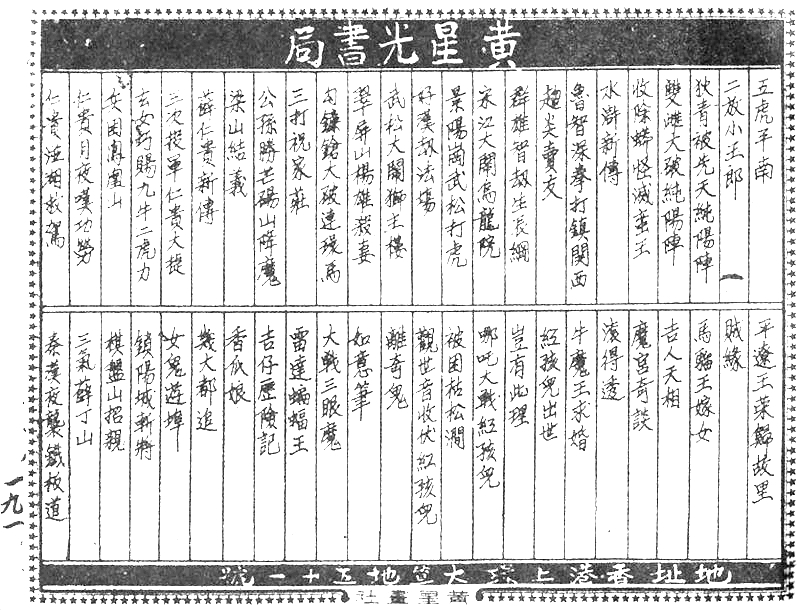 黃星光書局
五虎平南
二放小王郎
狄青被先天純陽陣
雙雌大破純陽陣
收除蟒怪滅蛮王
水滸新傳
魯智深拳打鎮関西
趨炎賣友
群雄智劫生辰綱
宋江大鬧烏龍院
景陽崗武松打虎
好漢劫法場
武松大鬧獅王樓
翠屏山楊雄殺妻
勾鐮鎗大破連環馬
三打祝家莊
公孫勝芒碭山降魔
梁山結義
薛仁貴新傳
二次投軍仁貴大捷
玄女訓賜九牛二虎力
女困鳳凰山
仁貴月夜嘆功勞
仁貴淤泥救駕
平遼王榮歸故里
賊緣
馬騮王嫁女
吉人天相
魔宮奇談
滾得透
牛魔王求婚
紅孩兒出世
豈有此理
哪吒大戰紅孩兒
被困枯松澗
觀世音收伏紅孩兒
離奇鬼
如意筆
大戰三眼魔
雷達蝙蝠王
吉仔歷險記
香瓜娘
幾大都追
女鬼遊埠
鎖陽城斬將
棋盤山招親
三氣薛丁山
秦漢夜襲鐵板道
地址香港上環大笪地五十一號
黃星畫社
一九一